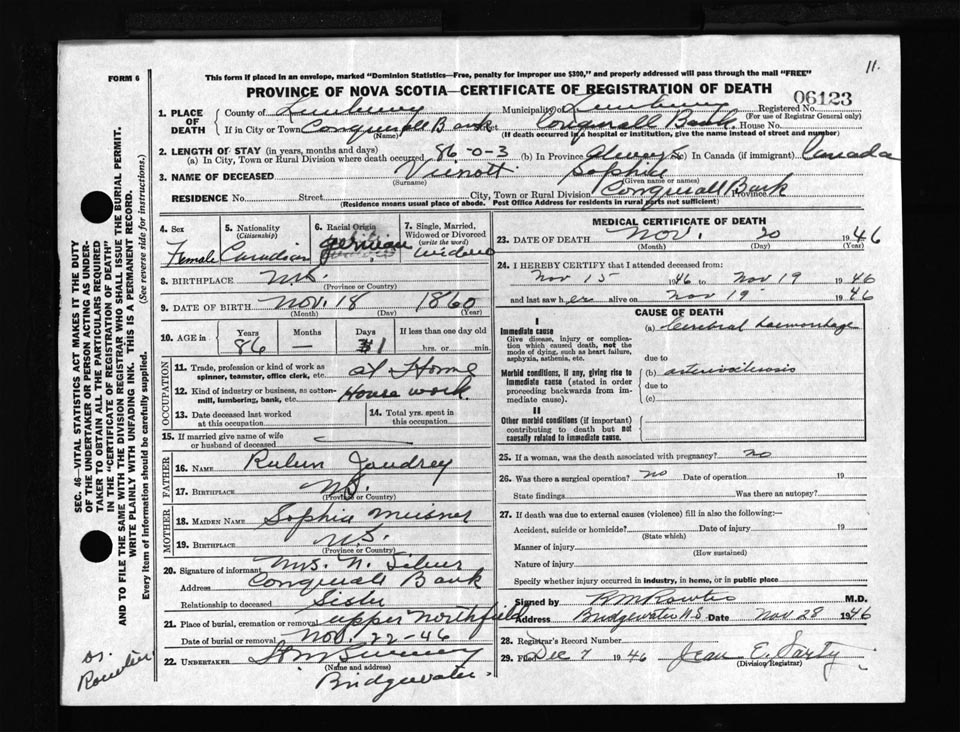 11.
FORM 6
This form if placed in an envelope, marked "Dominion Statistics—Free, penalty for improper use $300," and properly addressed will pass through the mail "FREE"
PROVINCE OF NOVA SCOTIA—CERTIFICATE OF REGISTRATION OF DEATH
06123
1. PLACE OF DEATH
County of Lunenburg Municipality of Lunenburg Registered No.
(For use of Registrar General only)
If in City or Town Conquerall Bank Street Conquerall Bank. House No.
(Name) (If death occurred in a hospital or institution, give the name instead of street and number)
2. LENGTH OF STAY (in years, months and days)
(a) In City, Town or Rural Division where death occurred 86-0-3 (b) In Province Always (c) In Canada (if immigrant) Canada
3. NAME OF DECEASED Vienott Sophia
(Surname) (Given name or names)
RESIDENCE No. Street City, Town or Rural Division Conquerall Bank Province
(Residence means usual place of abode. Post Office Address for residents in rural parts not sufficient)
4. Sex
Female
5. Nationality
(Citizenship)
Canadian
6. Racial Origin
German
7. Single, Married, Widowed or Divorced
(write the word)
widow
8. BIRTHPLACE N.S.
(Province or Country)
9. DATE OF BIRTH Nov. 18 1860
(Month) (Day) (Year)
10. AGE in
Years Months Days If less than one day old
86 — 1 hrs. or min.
OCCUPATION
11. Trade, profession or kind of work as spinner, teamster, office clerk, etc. at Home
12. Kind of industry or business, as cotton-mill, lumbering, bank, etc. House work.
13. Date deceased last worked at this occupation
14. Total yrs. spent in this occupation
15. If married give name of wife or husband of deceased
FATHER
16. NAME Ruben Jaudrey
17. BIRTHPLACE N.S.
(Province or Country)
MOTHER
18. MAIDEN NAME Sophia Meisner
19. BIRTHPLACE N.S.
(Province or Country)
20. Signature of informant Mrs. N.
Address Conquerall Bank
Relationship to deceased Sister
21. Place of burial, cremation or removal upper Northfield
Date of burial or removal Nov. 22-46
22. UNDERTAKER
(Name and address)
Bridgewater.
MEDICAL CERTIFICATE OF DEATH
23. DATE OF DEATH Nov. 20 1946
(Month) (Day) (Year)
24. I HEREBY CERTIFY that I attended deceased from:
Nov 15 1946 to Nov 19 1946
and last saw her alive on Nov 19 1946
CAUSE OF DEATH
I
Immediate cause
Give disease, injury or complication which caused death, not the mode of dying, such as heart failure, asphyxia, asthenia, etc.
(a) Cerebral haemorrhage
due to
Morbid conditions, if any, giving rise to immediate cause (stated in order proceeding backwards from immediate cause).
(b) arteriosclerosis
due to
(c)
II
Other morbid conditions (if important) contributing to death but not causally related to immediate cause.
25. If a woman, was the death associated with pregnancy? no
26. Was there a surgical operation? no Date of operation 19
State findings Was there an autopsy?
27. If death was due to external causes (violence) fill in also the following:—
Accident, suicide or homicide? Date of injury 19
(State which)
Manner of injury
(How sustained)
Nature of injury
Specify whether injury occurred in industry, in home, or in public place
Signed by R M Rowter M.D.
Address Bridgewater N.S Date Nov 28 1946
28. Registrar's Record Number
29. Filed Dec 7 1946 Jean E. Sarty
(Division Registrar)
SEC. 46—VITAL STATISTICS ACT MAKES IT THE DUTY
OF THE UNDERTAKER OR PERSON ACTING AS UNDERTAKER TO OBTAIN ALL THE PARTICULARS REQUIRED
IN THE "CERTIFICATE OF REGISTRATION OF DEATH"
AND TO FILE THE SAME WITH THE DIVISION REGISTRAR WHO SHALL ISSUE THE BURIAL PERMIT.
WRITE PLAINLY WITH UNFADING INK. THIS IS A PERMANENT RECORD.
Every item of information should be carefully supplied. (See reverse side for instructions.)
Dr.
Rowter